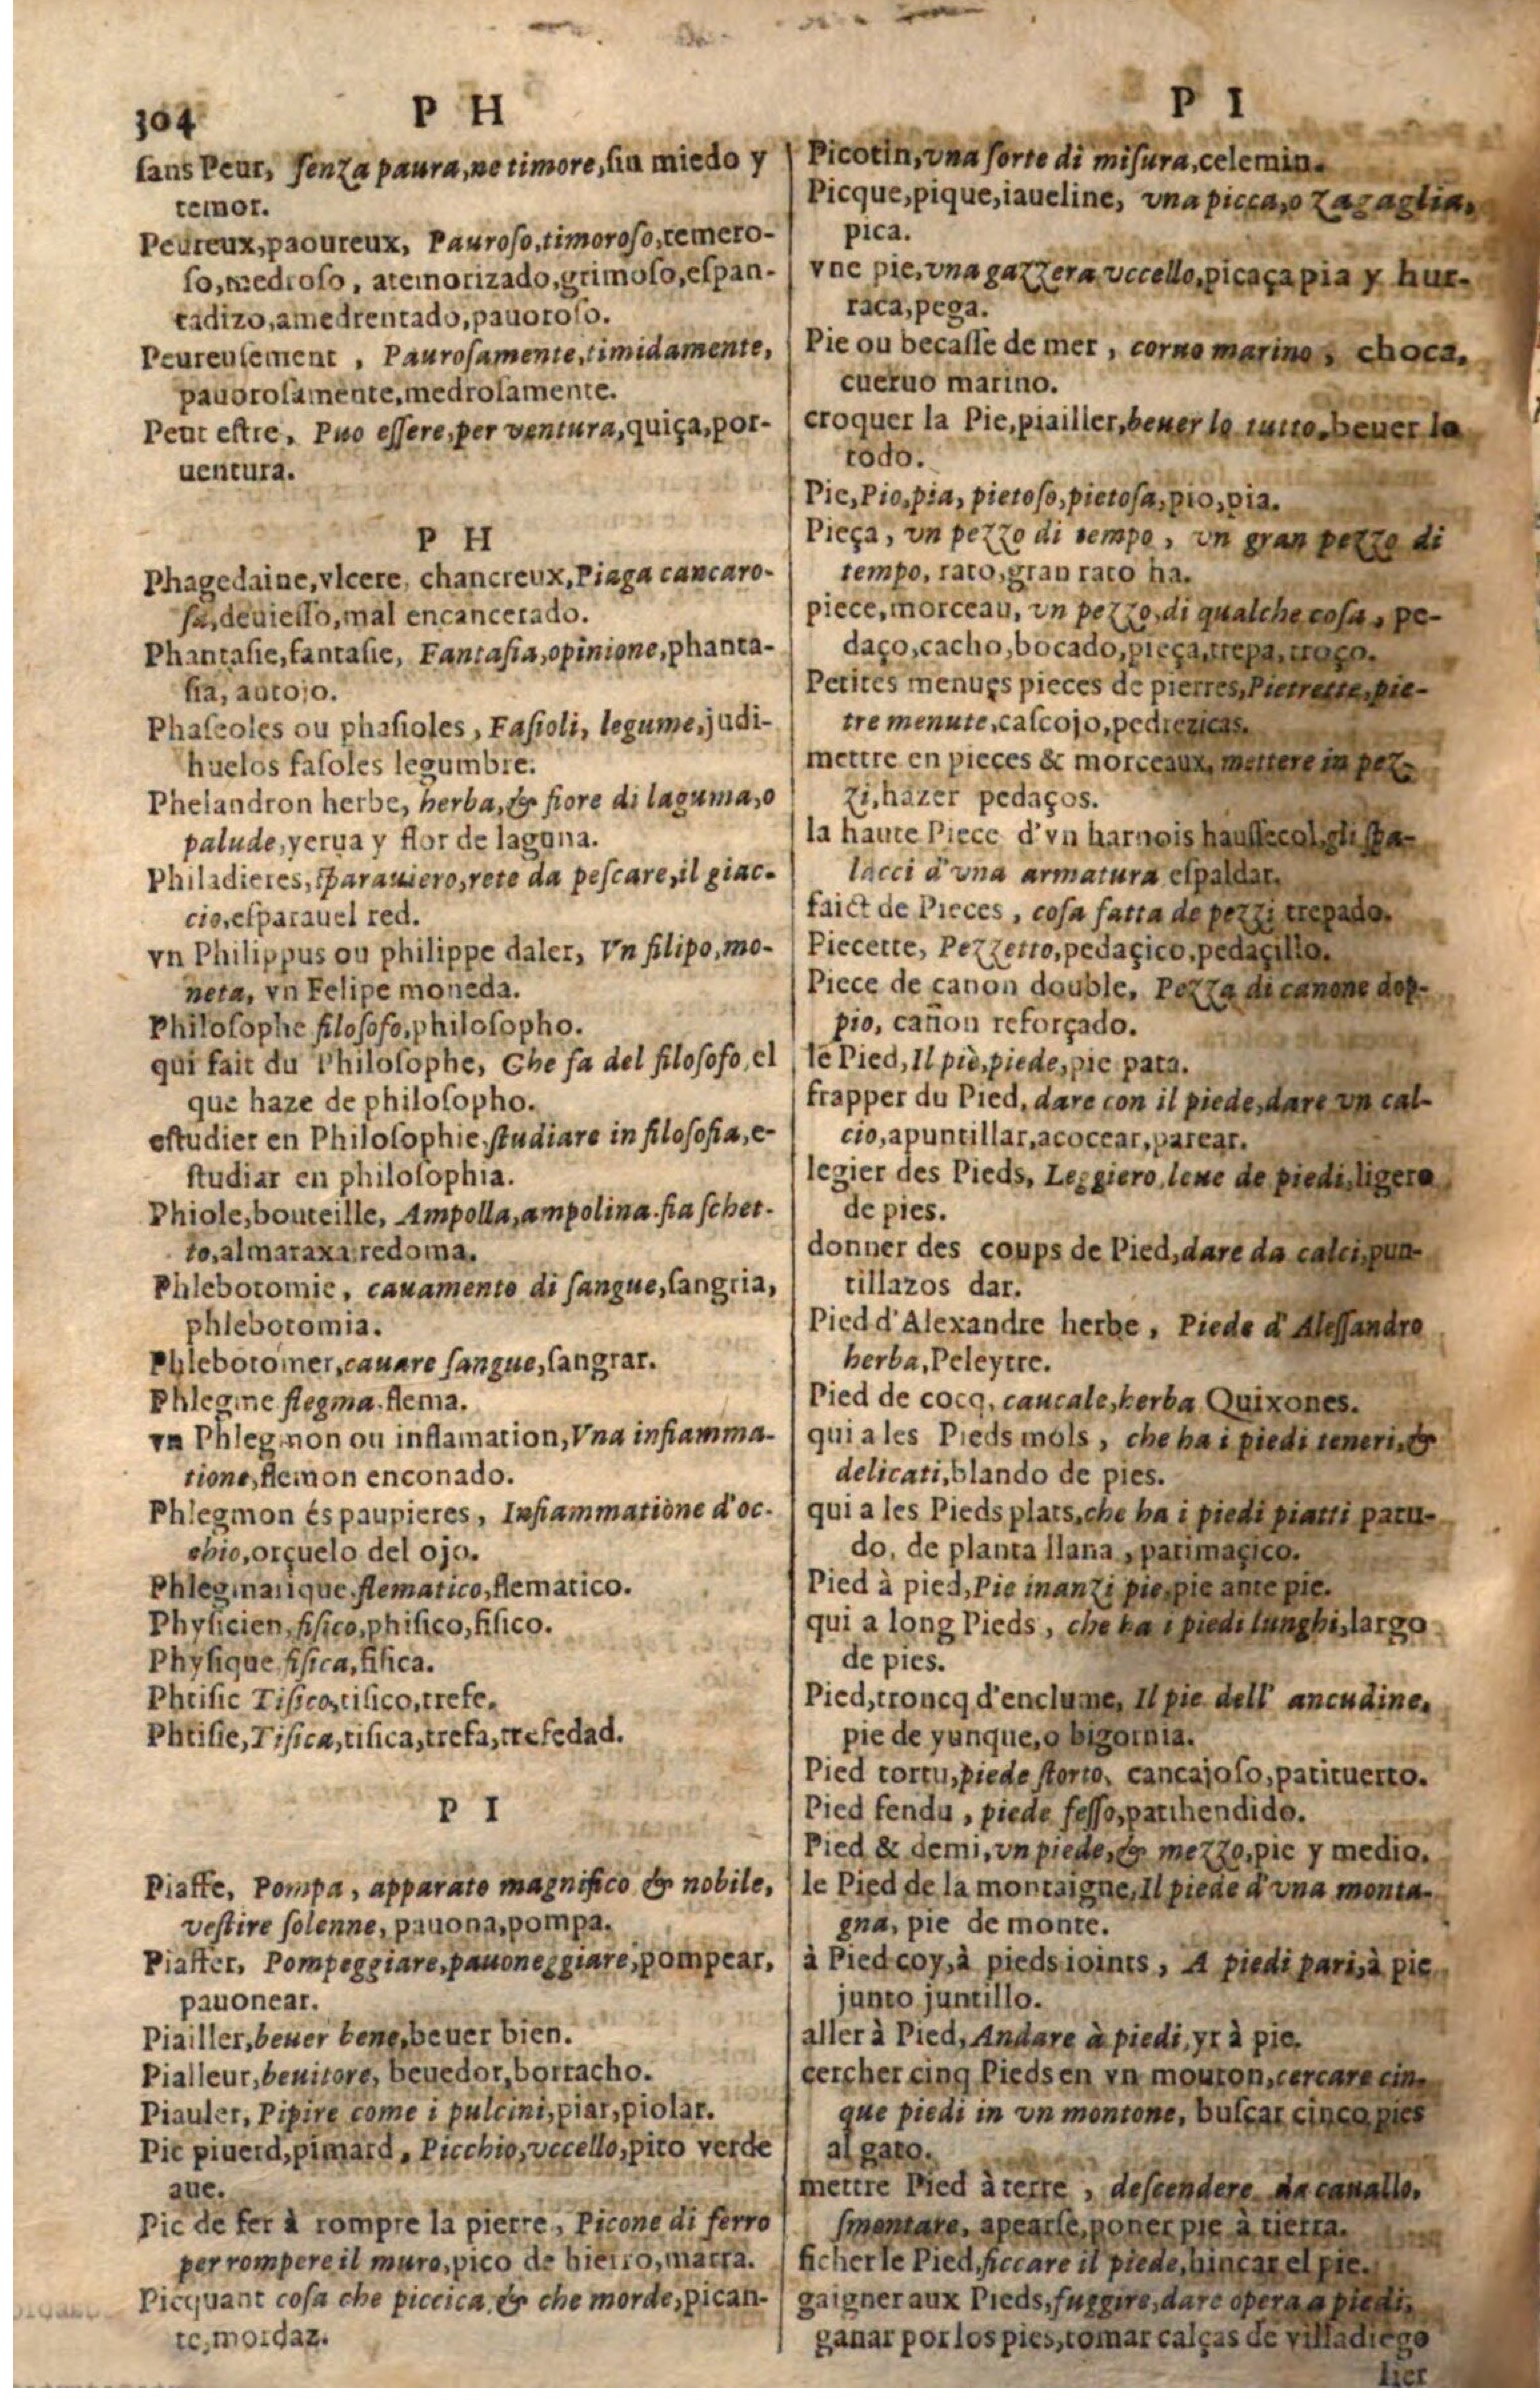 304
P H
P I
sans Peur, senza paura, ne timore, sin miedo y
temor.
Peureux, paoureux, Pauroso, timoroso, temero-
so, medroso, atemorizado, grimoso, espan-
tadizo, amedrentado, pauoroso.
Peureusement, Paurosamente, timidamente,
pauorosamente, medrosamente.
Peut estre, Puo essere, per ventura, quiça, por-
uentura.
P H
Phagedaine, vlcere, chancreux, Piaga cancaro-
sa, deuiesso, mal encancerado.
Phantasie, fantasie, Fantasia, opinione, phanta-
sia, antojo.
Phaseoles ou phasioles, Fasioli, legume, judi-
huelos fasoles legumbre.
Phelandron herbe, herba, & fiore di laguma, o
palude, yerua y flor de laguna.
Philadieres, sparauiero, rete da pescare, il giac-
cio, esparauel red.
vn Philippus ou philippe daler, Vn filipo, mo-
neta, vn Felipe moneda.
Philosophe filosofo, philosopho.
qui fait du Philosophe, Che fa del filosofo, el
que haze de philosopho.
estudier en Philosophie, studiare in filosofia, e-
studiar en philosophia.
Phiole, bouteille, Ampolla, ampolina. fia schet-
to, almaraxa redoma.
Phlebotomie, cauamento di sangue, sangria,
phlebotomia.
Phlebotomer, cauare sangue, sangrar.
Phlegme flegma. flema.
vn Phlegmon ou inflamation, Vna infiamma-
tione, flemon enconado.
Phlegmon és paupieres, Infiammatione d'oc-
chio, orçuelo del ojo.
Phlegmatique. flematico, flematico.
Physicien, fisico, phisico, fisico.
Physique fisica, fisica.
Phtisic Tisico, tisico, trefe.
Phtisie, Tisica, tisica, trefa, trefedad.
P I
Piaffe, Pompa, apparato magnifico & nobile,
vestire solenne, pauona, pompa.
Piaffer, Pompeggiare, pauoneggiare, pompear,
pauonear.
Piailler, beuer bene, beuer bien.
Pialleur, beuitore, beuedor, borracho.
Piauler, Pipire come i pulcini, piar, piolar.
Pic piuerd, pimard, Picchio, vccello, pito verde
aue.
Pic de fer à rompre la pierre, Picone di ferro
per rompere il muro, pico de hierro, marra.
Picquant cosa che piccica, & che morde, pican-
te, mordaz.
Picotin, vna sorte di misura, celemin.
Picque, pique, iaueline, vna picca, o zagaglia,
pica.
vne pie, vna gazzera vccello, picaça pia y hur-
raca, pega.
Pie ou becasse de mer, corno marino, choca,
cueruo marino.
croquer la Pie, piailler, beuer lo tutto, beuer lo
todo.
Pie, Pio, pia, pietoso, pietosa, pio, pia.
Pieça, vn pezzo di tempo, vn gran pezzo di
tempo, rato, gran rato ha.
piece, morceau, vn pezzo, di qualche cosa, pe-
daço, cacho, bocado, pieça, trepa, troço.
Petites menues pieces de pierres, Pietrette, pie-
tre menute, cascojo, pedrezicas.
mettre en pieces & morceaux, mettere in pez-
zi, hazer pedaços.
la haute Piece d'vn harnois haussecol, gli spa-
lacci d'vna armatura espaldar.
faict de Pieces, cosa fatta de pezzi trepado.
Piecette, Pezzetto, pedaçico, pedaçillo.
Piece de canon double, Pezza di canone dop-
pio, cañon reforçado.
le Pied, Il piè, piede, pie pata.
frapper du Pied, dare con il piede, dare vn cal-
cio, apuntillar, acocear, parear.
legier des Pieds, Leggiero, leue de piedi, ligero
de pies.
donner des coups de Pied, dare da calci, pun-
tillazos dar.
Pied d'Alexandre herbe, Piede d'Alessandro
herba, Peleytre.
Pied de cocq, caucale, herba Quixones.
qui a les Pieds mols, che ha i piedi teneri, &
delicati, blando de pies.
qui a les Pieds plats, che ha i piedi piatti patu-
do, de planta llana, patimaçico.
Pied à pied, Pie inanzi pie, pie ante pie.
qui a long Pieds, che ha i piedi lunghi, largo
de pies.
Pied, troncq d'enclume, Il pie dell' ancudine,
pie de yunque, o bigornia.
Pied tortu, piede storto, cancajoso, patituerto.
Pied fendu, piede fesso, patihendido.
Pied & demi, vn piede, & mezzo, pie y medio.
le Pied de la montaigne, Il piede d'vna monta-
gna, pie de monte.
à Pied coy, à pieds ioints, A piedi pari, à pie
junto juntillo.
aller à Pied, Andare à piedi, yr à pie.
cercher cinq Pieds en vn mouton, cercare cin-
que piedi in vn montone, buscar cinco pies
al gato.
mettre Pied à terre, descendere da cauallo,
smontare, apearse, poner pie à tierra.
ficher le Pied, ficcare il piede, hincar el pie.
gaigner aux Pieds, fuggire, dare opera a piedi,
ganar por los pies, tomar calças de villadiego
lier